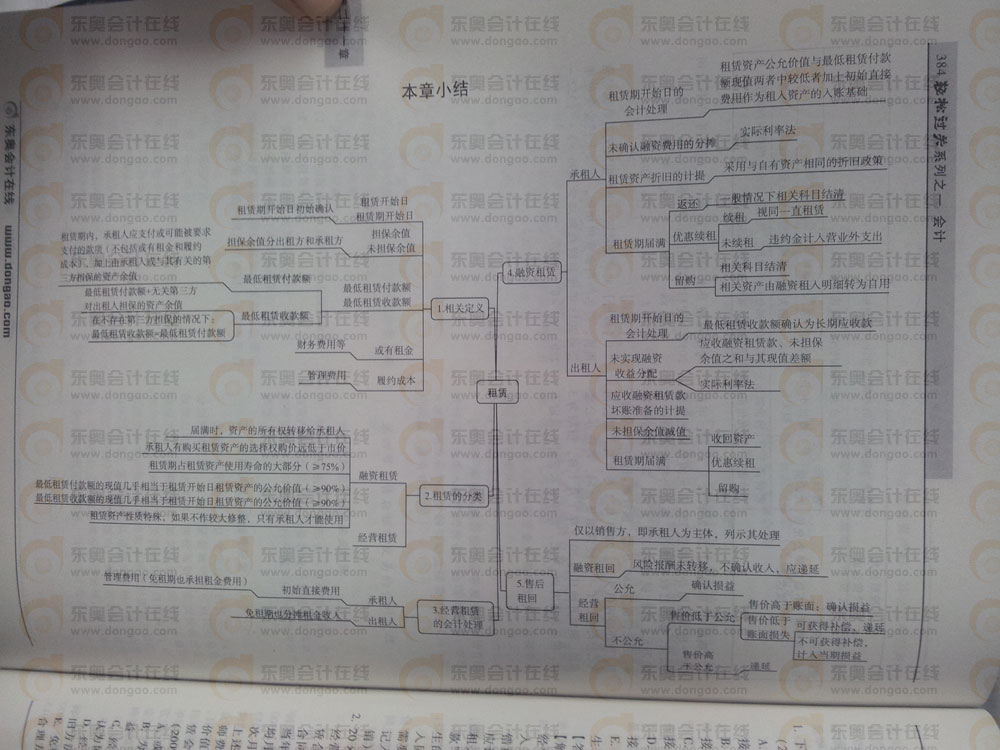 本章小结
384
轻松过关系列之一 会计
东奥会计在线
www.dongao.com
租赁
1.相关定义
租赁开始日
租赁期开始日
租赁期开始日初始确认
担保余值
未担保余值
担保余值分出租方和承租方
最低租赁付款额
最低租赁收款额
最低租赁付款额
租赁期内，承租人应支付或可能被要求
支付的款项（不包括或有租金和履约
成本），加上由承租人或与其有关的第
三方担保的资产余值
最低租赁收款额
最低租赁付款额+无关第三方
对出租人担保的资产余值
在不存在第三方担保的情况下：
最低租赁收款额=最低租赁付款额
或有租金
财务费用等
履约成本
管理费用
2.租赁的分类
融资租赁
届满时，资产的所有权转移给承租人
承租人有购买租赁资产的选择权购价远低于市价
租赁期占租赁资产使用寿命的大部分（≥75%）
最低租赁付款额的现值几乎相当于租赁开始日租赁资产的公允价值（≥90%）
最低租赁收款额的现值几乎相当于租赁开始日租赁资产的公允价值（≥90%）
租赁资产性质特殊，如果不作较大修整，只有承租人才能使用
经营租赁
3.经营租赁
的会计处理
承租人
初始直接费用
管理费用（免租期也承担租金费用）
出租人
免租期也分摊租金收入
4.融资租赁
承租人
租赁期开始日的
会计处理
租赁资产公允价值与最低租赁付款
额现值两者中较低者加上初始直接
费用作为租入资产的入账基础
未确认融资费用的分摊
实际利率法
租赁资产折旧的计提
采用与自有资产相同的折旧政策
租赁期届满
返还
一般情况下相关科目结清
优惠续租
续租
视同一直租赁
未续租
违约金计入营业外支出
留购
相关科目结清
相关资产由融资租入明细转为自用
出租人
租赁期开始日的
会计处理
最低租赁收款额确认为长期应收款
未实现融资
收益分配
应收融资租赁款、未担保
余值之和与其现值差额
实际利率法
应收融资租赁款
坏账准备的计提
未担保余值减值
租赁期届满
收回资产
优惠续租
留购
5.售后
租回
仅以销售方，即承租人为主体，列示其处理
融资租回
风险报酬未转移，不确认收入，应递延
经营
租回
公允
确认损益
不公允
售价低于公允
售价高于账面：确认损益
售价低于
账面损失
可获得补偿，递延
不可获得补偿，
计入当期损益
售价高
于公允
递延